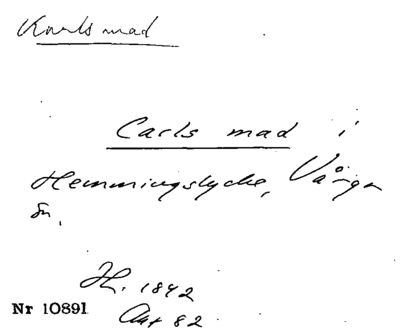 Karlsmad
Carls mad i
Hemmingslycke, Vånga
sn.
H. 1842
Akt 82
Nr 10891